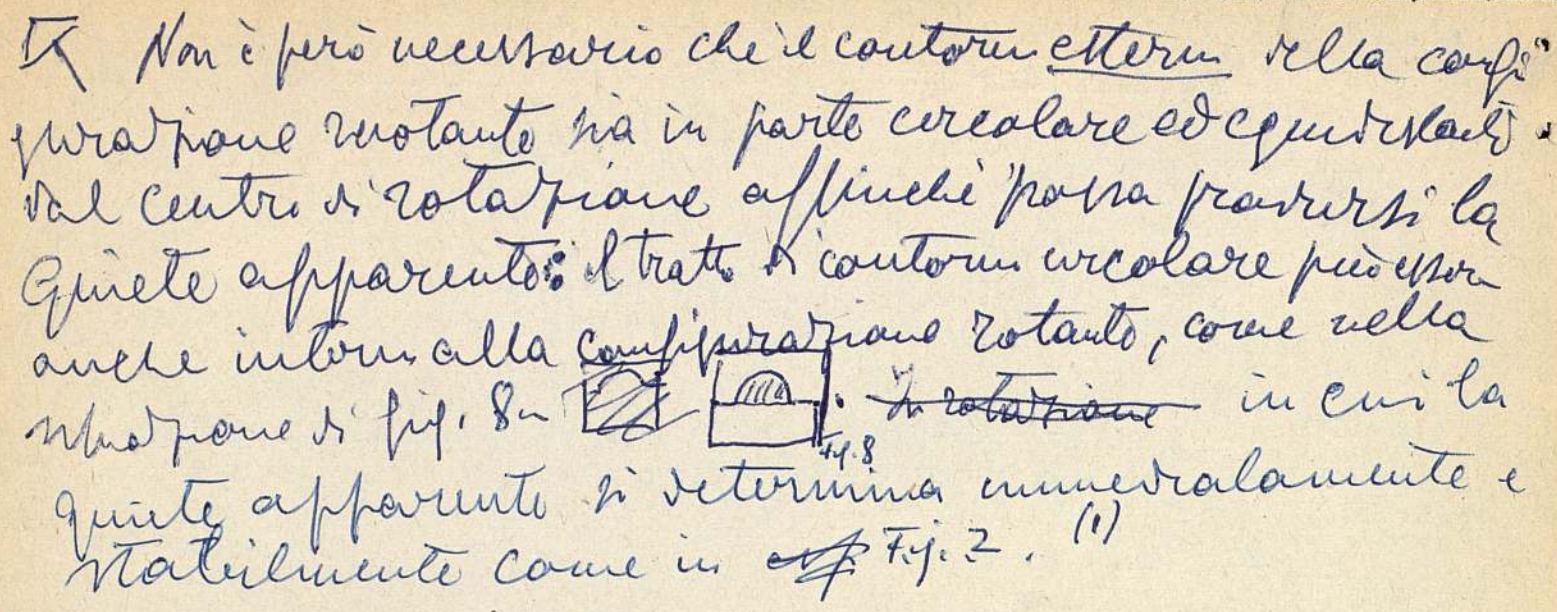 Non è però necessario che il contorno esterno della confi
gurazione ruotante sia in parte circolare ed equidistante
dal centro di rotazione affinché possa prodursi la
Quiete apparente: il tratto di contorno circolare può essere
anche interno alla configurazione rotante, come nella
situazione di fig. 8 Fig. 8 in rotazione in cui la
quiete apparente si determina immediatamente e
stabilmente come in Fig. 2. (1)